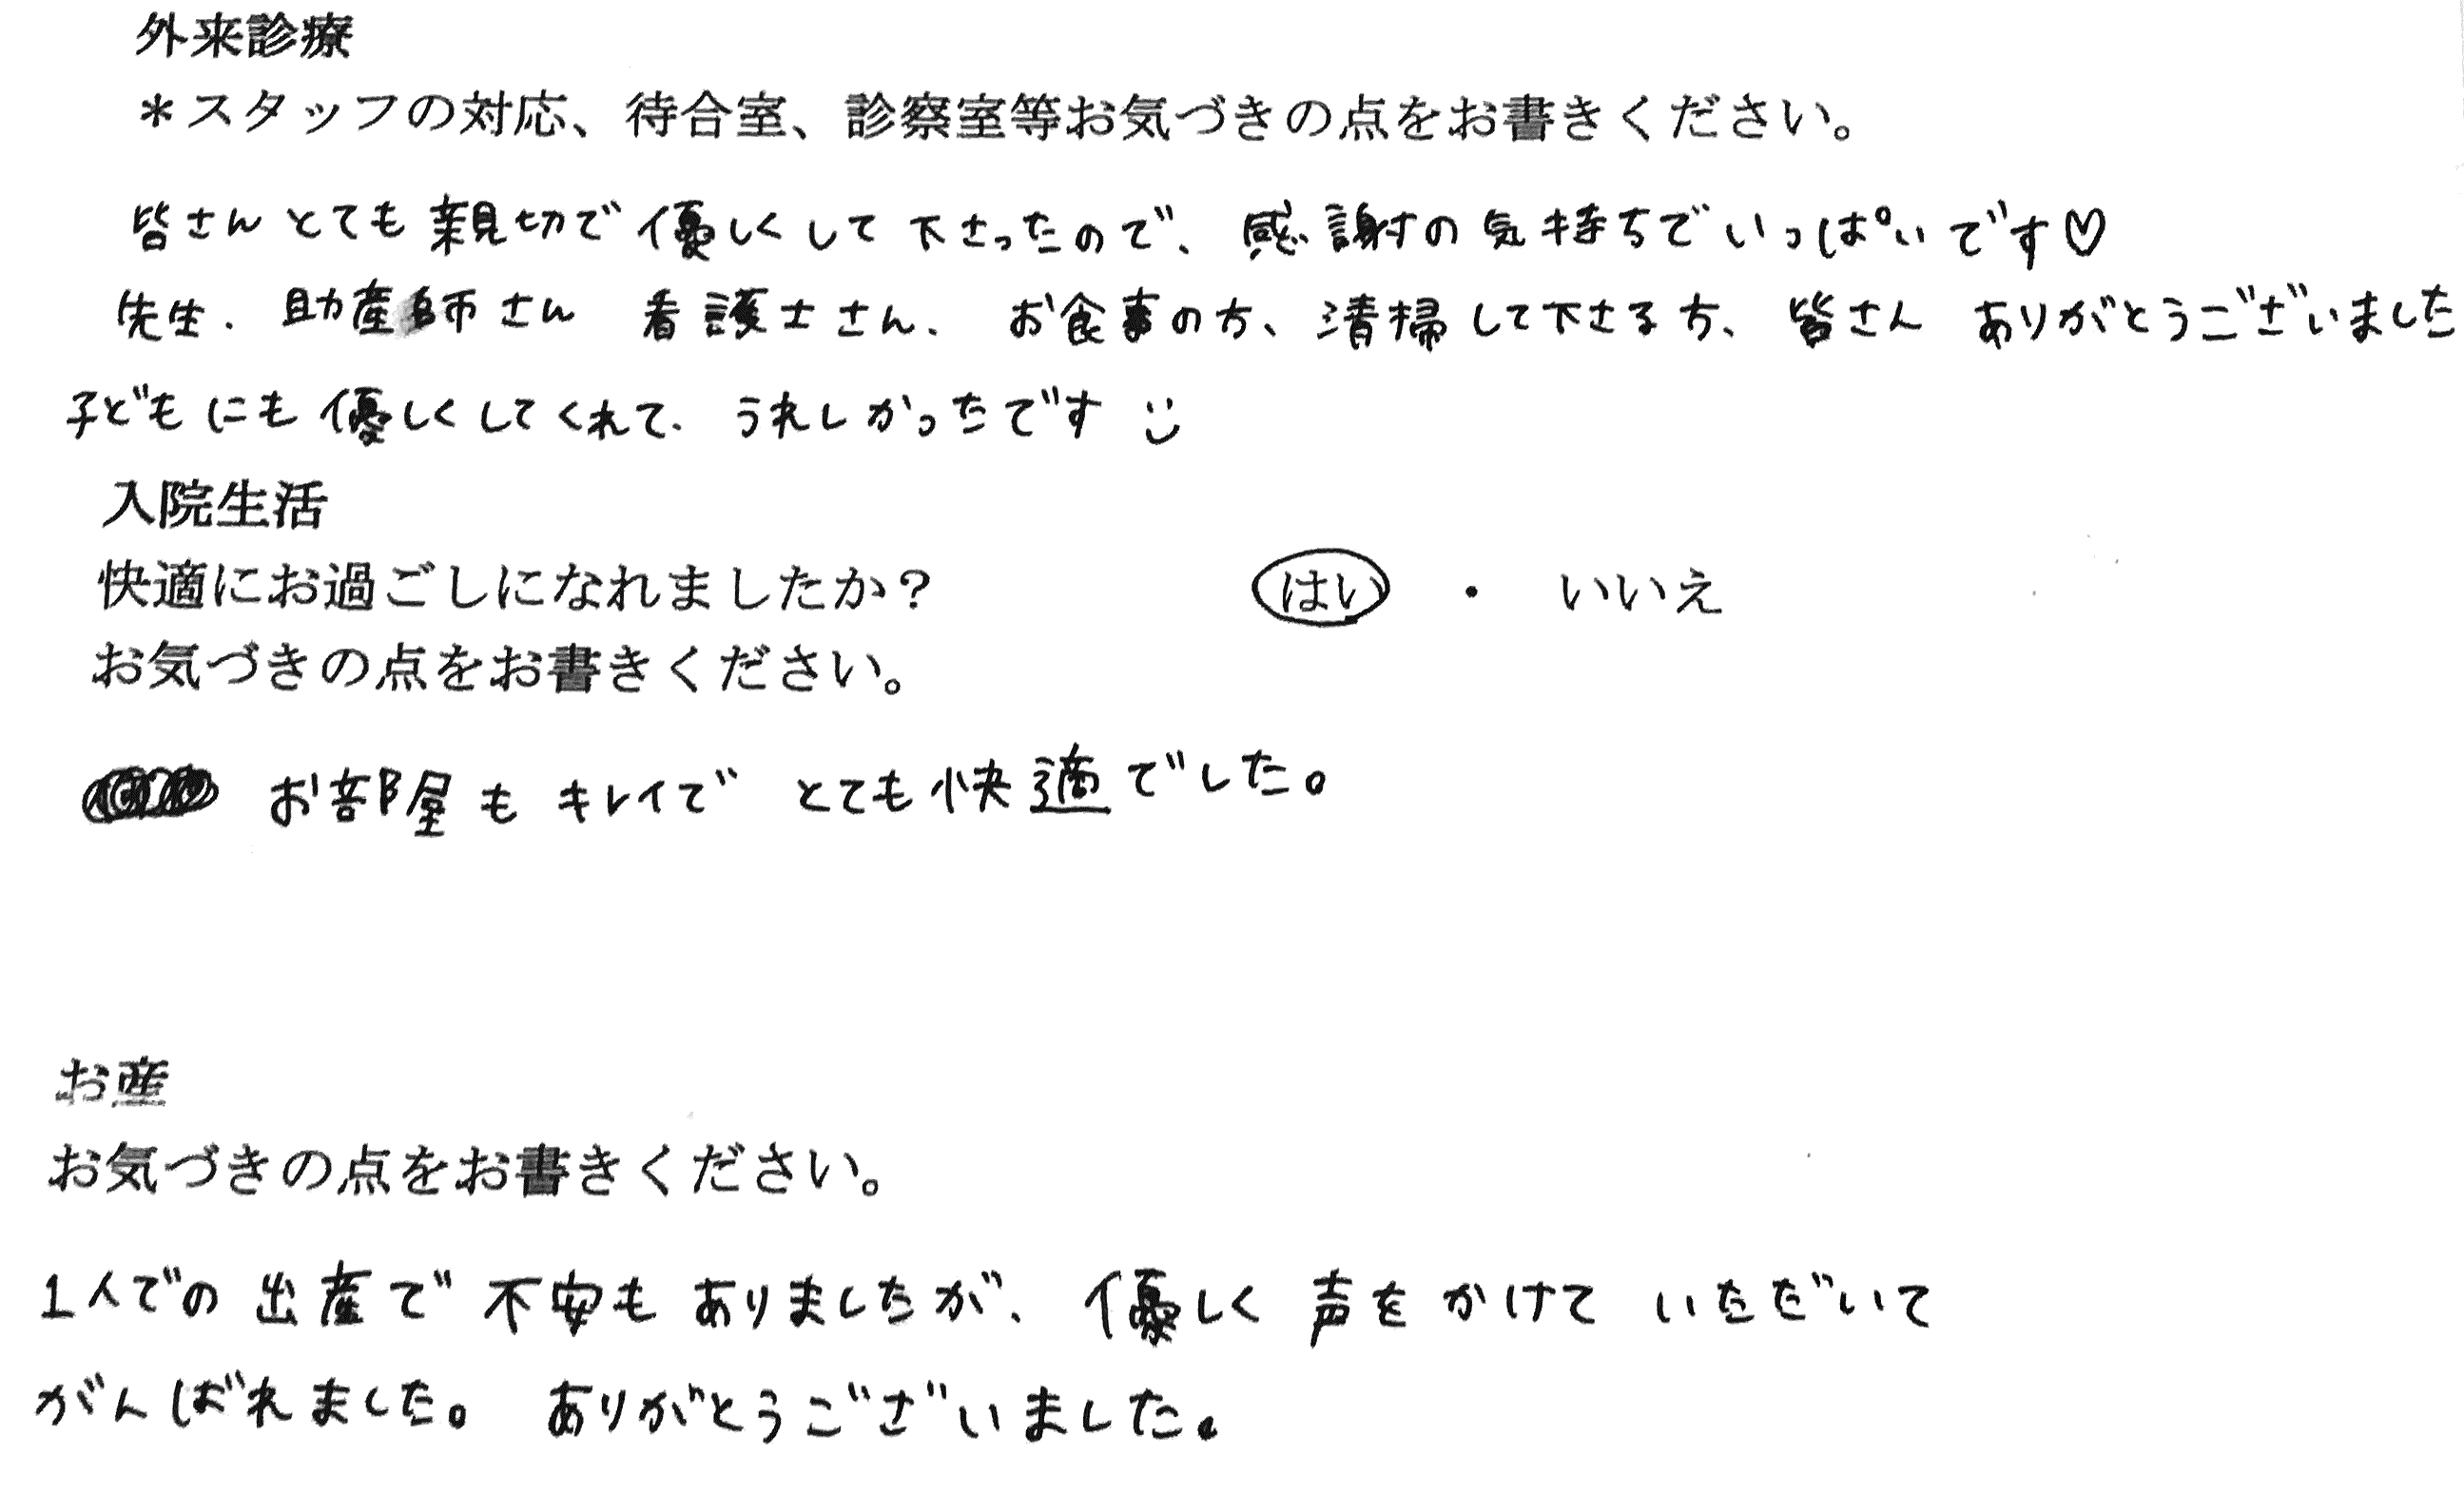 外来診療
＊スタッフの対応、待合室、診察室等お気づきの点をお書きください。
皆さんとても親切で優しくして下さったので、感謝の気持ちでいっぱいです♡
先生、助産師さん 看護士さん、お食事の方、清掃して下さる方、皆さん ありがとうございました
子どもにも優しくしてくれて、うれしかったです ☺
入院生活
快適にお過ごしになれましたか？ はい ・ いいえ
お気づきの点をお書きください。
お部屋もキレイで とても快適でした。
お産
お気づきの点をお書きください。
1人での出産で不安もありましたが、優しく声をかけていただいて
がんばれました。ありがとうございました。